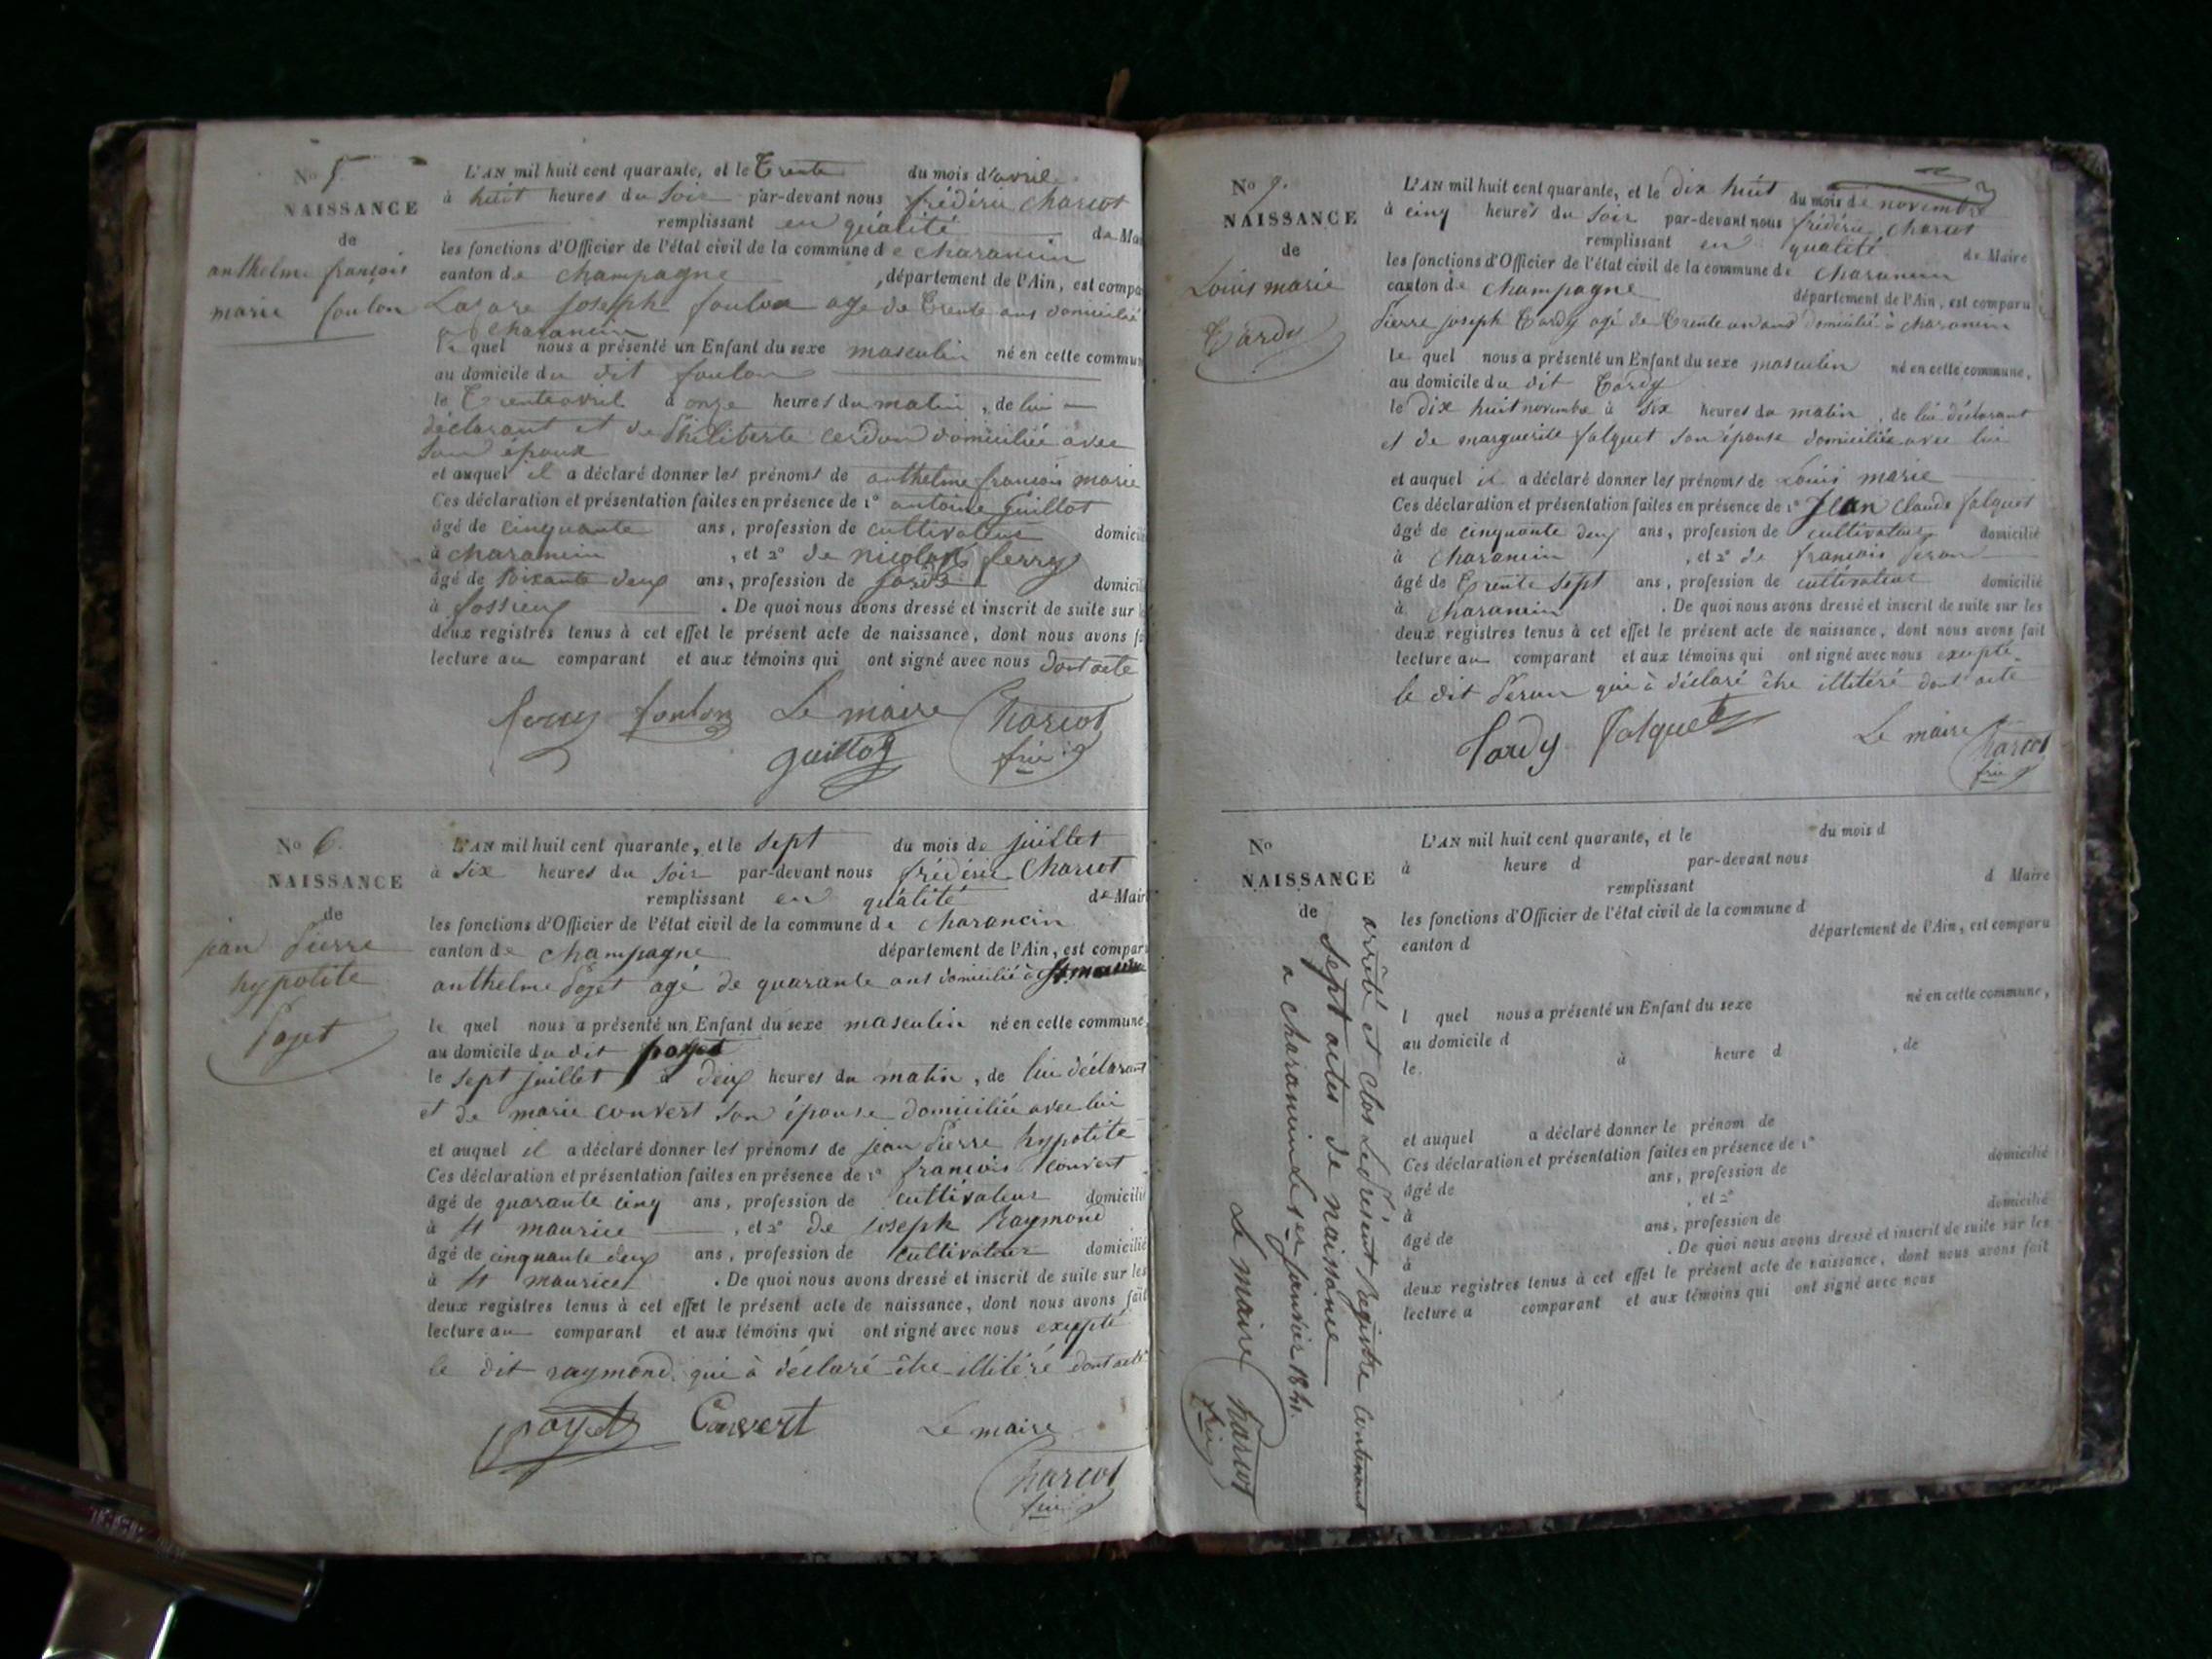 No 5
NAISSANCE
de
anthelme françois
marie foulon
L'AN mil huit cent quarante, et le Trente du mois d'avril
à huit heures du soir par-devant nous frédéric Charcot
remplissant en qualité de Mai
les fonctions d'Officier de l'état civil de la commune de charancin
canton de champagne, département de l'Ain, est compa
Lazare joseph foulon age de Trente ans domicilié
a charancin
le quel nous a présenté un Enfant du sexe masculin né en cette commun
au domicile du dit foulon
le Trente avril à onze heures du matin, de lui
déclarant et de Philiberte cerdon domiciliée avec
son époux
et auquel il a déclaré donner les prénoms de anthelme françois marie
Ces déclaration et présentation faites en présence de 1° antoine Guillot
âgé de cinquante ans, profession de cultivateur domicili
à charancin, et 2° de nicolas ferry
âgé de soixante deux ans, profession de domicili
à fossieux. De quoi nous avons dressé et inscrit de suite sur l
deux registres tenus à cet effet le présent acte de naissance, dont nous avons fa
lecture au comparant et aux témoins qui ont signé avec nous dont acte
foulon Le maire Charcot
guillot fric
No 6.
NAISSANCE
de
jean Pierre
hypolite
Pojet
L'AN mil huit cent quarante, et le sept du mois de juillet
à six heures du soir par-devant nous frédéric Charcot
remplissant en qualité de Mair
les fonctions d'Officier de l'état civil de la commune de charancin
canton de champagne département de l'Ain, est compar
anthelme Pojet agé de quarante ans domicilié à St maurice
le quel nous a présenté un Enfant du sexe masculin né en cette commune,
au domicile du dit poyet
le sept juillet à deux heures du matin, de lui déclarant
et de marie convert son épouse domiciliée avec lui
et auquel il a déclaré donner les prénoms de jean Pierre hypolite
Ces déclaration et présentation faites en présence de 1° françois convert
âgé de quarante cinq ans, profession de cultivateur domicilié
à St maurice, et 2° de joseph Raymond
âgé de cinquante deux ans, profession de cultivateur domicilié
à St maurice. De quoi nous avons dressé et inscrit de suite sur les
deux registres tenus à cet effet le présent acte de naissance, dont nous avons fait
lecture au comparant et aux témoins qui ont signé avec nous exepté
le dit raymond qui à déclaré être illitéré dont acte
poyet Convert Le maire
Charcot
fric
No 7.
NAISSANCE
de
Louis marie
Tardy
L'AN mil huit cent quarante, et le dix huit du mois de novembre
à cinq heures du soir par-devant nous frédéric Charcot
remplissant en qualité de Maire
les fonctions d'Officier de l'état civil de la commune de charancin
canton de champagne département de l'Ain, est comparu
Pierre joseph Tardy agé de trente un ans domicilié à charancin
le quel nous a présenté un Enfant du sexe masculin né en cette commune,
au domicile du dit Tardy
le dix huit novembre à six heures du matin, de lui déclarant
et de marguerite falquet son épouse domiciliée avec lui
et auquel il a déclaré donner les prénoms de Louis marie
Ces déclaration et présentation faites en présence de 1° Jean Claude falquet
âgé de cinquante deux ans, profession de cultivateur domicilié
à charancin, et 2° de françois
âgé de Trente sept ans, profession de cultivateur domicilié
à charancin. De quoi nous avons dressé et inscrit de suite sur les
deux registres tenus à cet effet le présent acte de naissance, dont nous avons fait
lecture au comparant et aux témoins qui ont signé avec nous exepté
le dit qui à déclaré être illitéré dont acte
Tardy falquet Le maire Charcot
fric
No
NAISSANCE
de
L'AN mil huit cent quarante, et le du mois d
à heure d par-devant nous
remplissant d Maire
les fonctions d'Officier de l'état civil de la commune d
canton d département de l'Ain, est comparu
l quel nous a présenté un Enfant du sexe né en cette commune,
au domicile d
le à heure d, de
et auquel a déclaré donner le prénom de
Ces déclaration et présentation faites en présence de 1°
âgé de ans, profession de domicilié
à, et 2°
âgé de ans, profession de domicilié
à. De quoi nous avons dressé et inscrit de suite sur les
deux registres tenus à cet effet le présent acte de naissance, dont nous avons fait
lecture a comparant et aux témoins qui ont signé avec nous
arrêté et clos Le Présent Registre Contenant
sept actes de naissance
a charancin Le 1er janvier 1841.
Le maire Charcot
fric